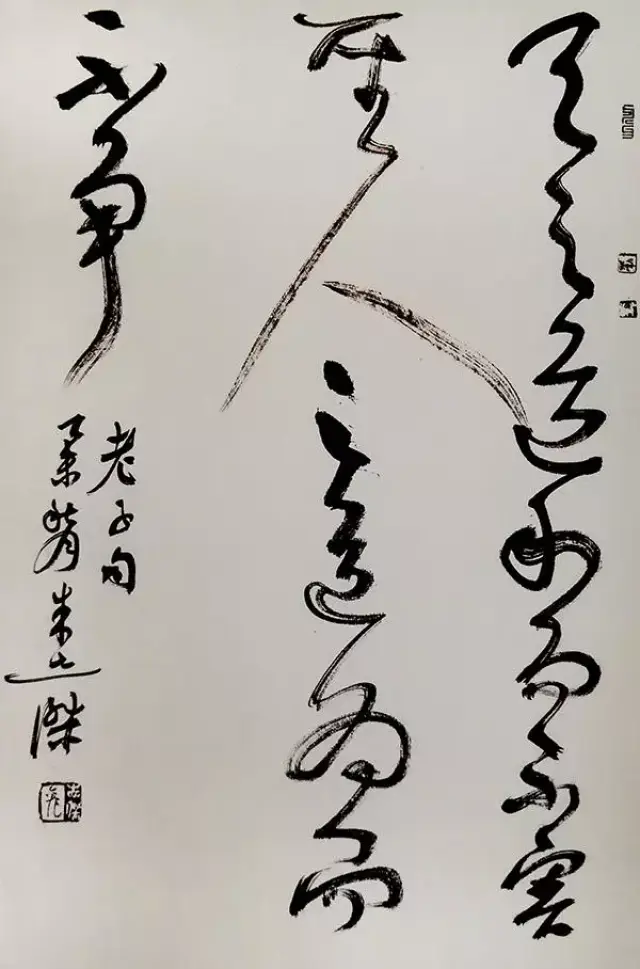 天之道利而不害
聖人之道為而
不爭
老子句
朱之傑